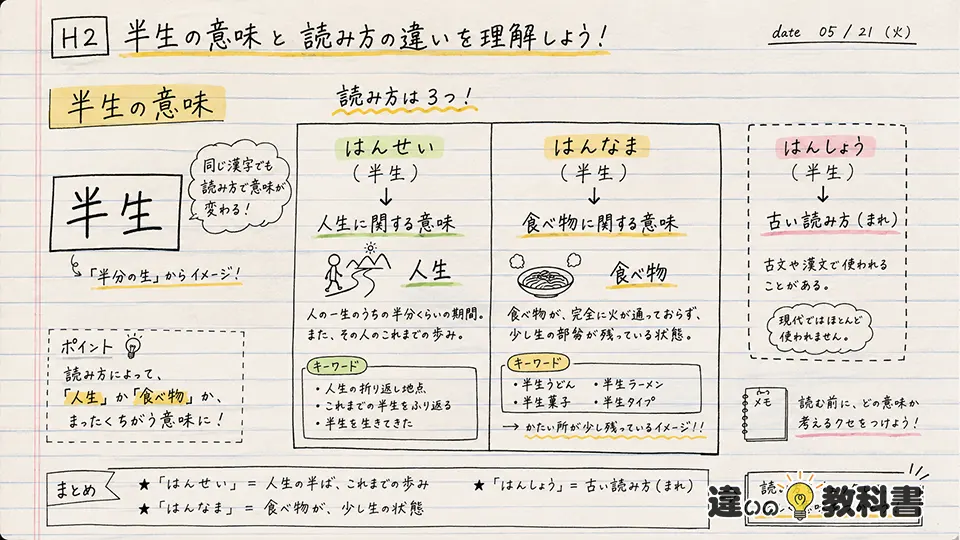 H2 半生の意味と読み方の違いを理解しよう！
date 05/21（火）
半生の意味
読み方は3つ！
半生
同じ漢字でも
読み方で意味が
変わる！
「半分の生」からイメージ！
ポイント
読み方によって、
「人生」か「食べ物」か、
まったくちがう意味に！
はんせい
（半生）
人生に関する意味
人生
人の一生のうちの半分くらいの期間。
また、その人のこれまでの歩み。
キーワード
・人生の折り返し地点
・これまでの半生をふり返る
・半生を生きてきた
はんなま
（半生）
食べ物に関する意味
食べ物
食べ物が、完全に火が通っておらず、
少し生の部分が残っている状態。
キーワード
・半生うどん ・半生ラーメン
・半生菓子 ・半生タイプ
→ かたい所が少し残っているイメージ！！
はんしょう
（半生）
古い読み方（まれ）
古文や漢文で使われる
ことがある。
現代ではほとんど
使われません。
メモ
読む前に、どの意味か
考えるクセをつけよう！
まとめ
★「はんせい」＝ 人生の半ば、これまでの歩み
★「はんしょう」＝ 古い読み方（まれ）
★「はんなま」＝ 食べ物が、少し生の状態
読
違いの教科書